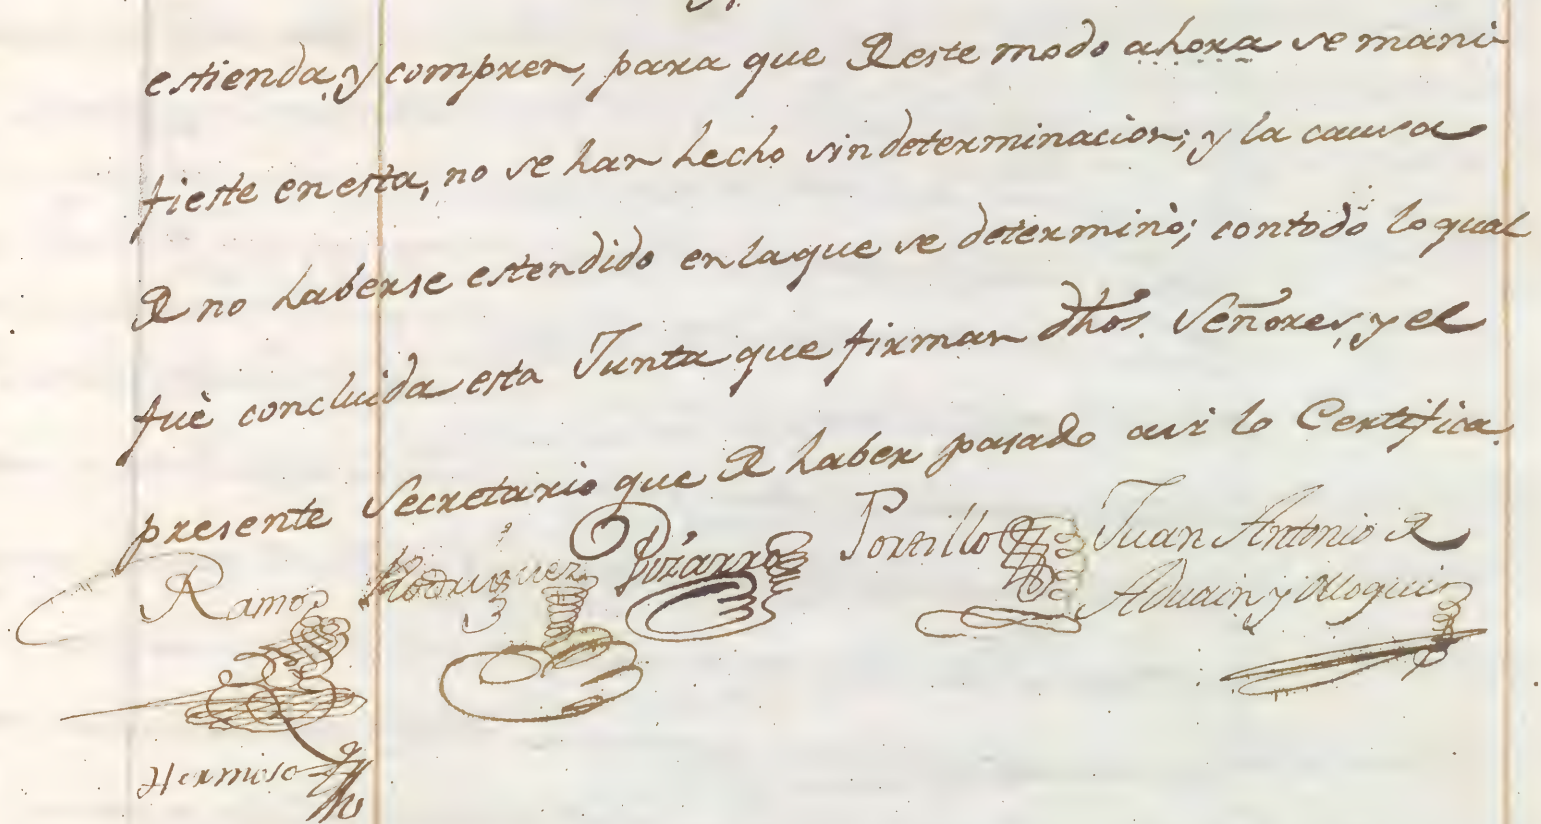 estienda, y compren, para que de este modo ahora se mani-
fieste en esta, no se han hecho sin determinacion; y la causa
de no haberse estendido en la que se determinò; con todo lo qual
fuè concluida esta Junta que firman dhos. Señores, y el
presente Secretario que de haber pasado asi lo Certifica.
Ramos Rodriguez Pizarro Portillo Juan Antonio de
Aduain y
Hermoso